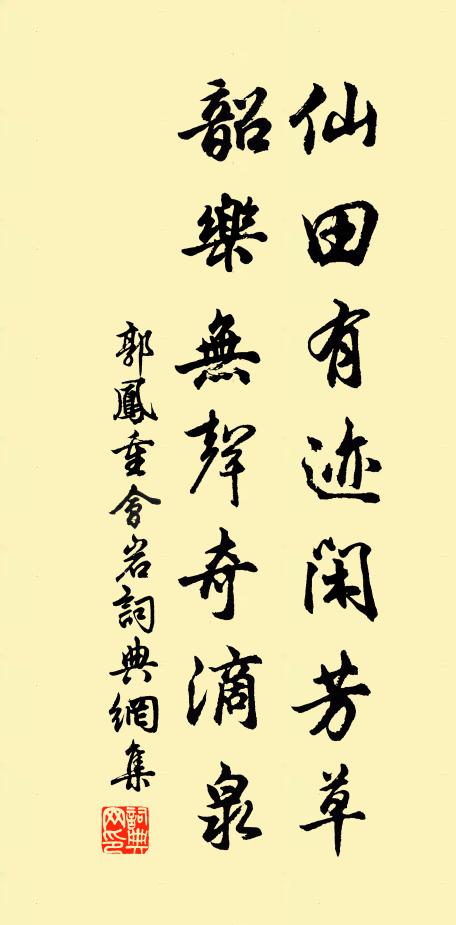 仙田有迹閑芳草
韶樂無聲奇滴泉
郭鳳重會岩詞典網集
詞典网印